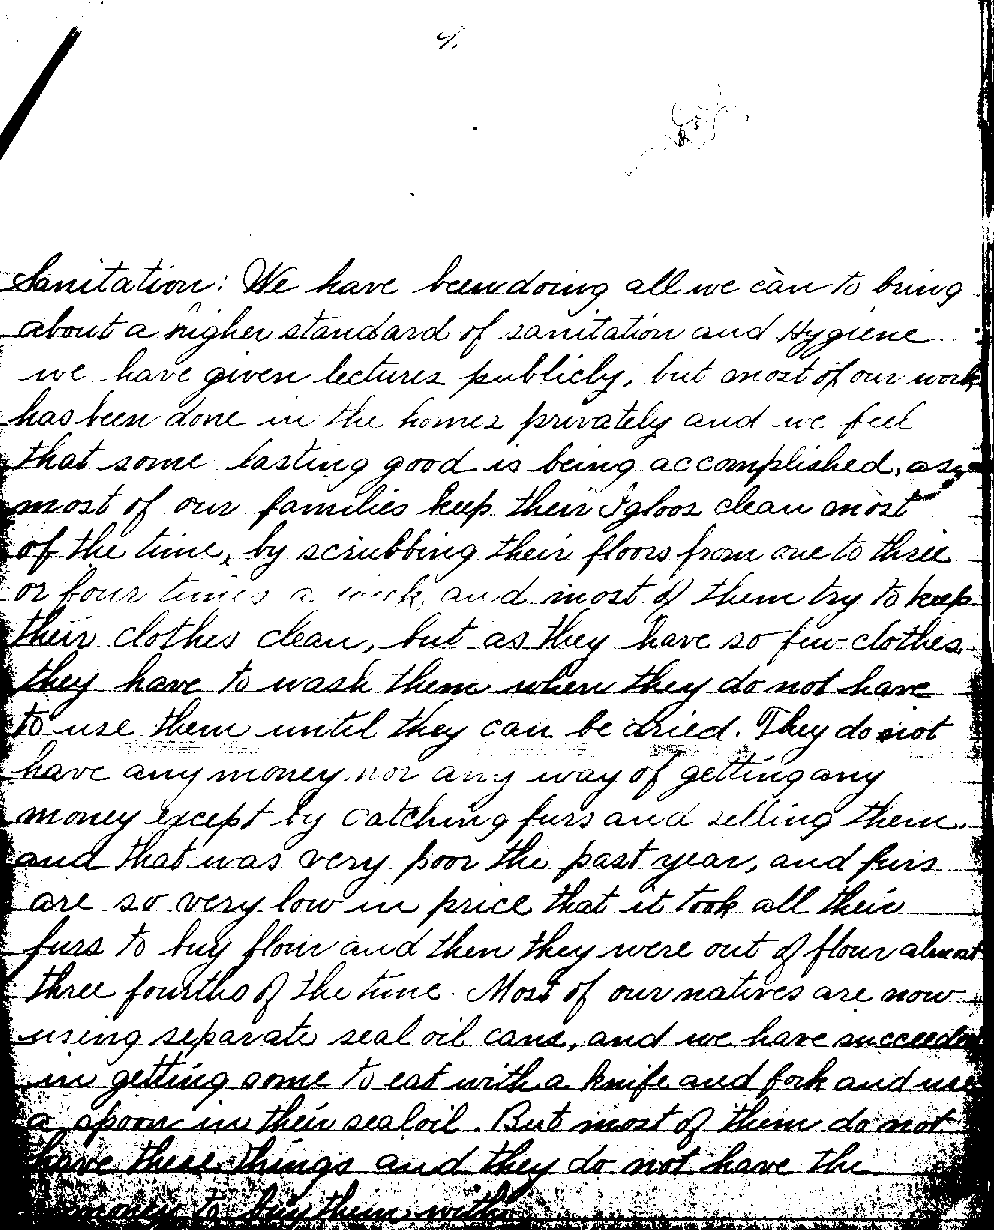 Sanitation: We have been doing all we can to bring
about a higher standard of sanitation and Hygiene
we have given lectures publicly, but most of our work
has been done in the homes privately and we feel
that some lasting good is being accomplished, as
most of our families keep their Igloos clean most
of the time, by scrubbing their floors from one to three
or four times a week, and most of them try to keep
their clothes clean, but as they have so few clothes
they have to wash them when they do not have
to use them until they can be dried. They do not
have any money nor any way of getting any
money except by catching furs and selling them.
and that was very poor the past year, and furs
are so very low in price that it took all their
furs to buy flour and then they were out of flour almost
three fourths of the time. Most of our natives are now
using separate seal oil cans, and we have succeeded
in getting some to eat with a knife and fork and use
a spoon in their seal oil. But most of them do not
have these things and they do not have the
money to buy them with.